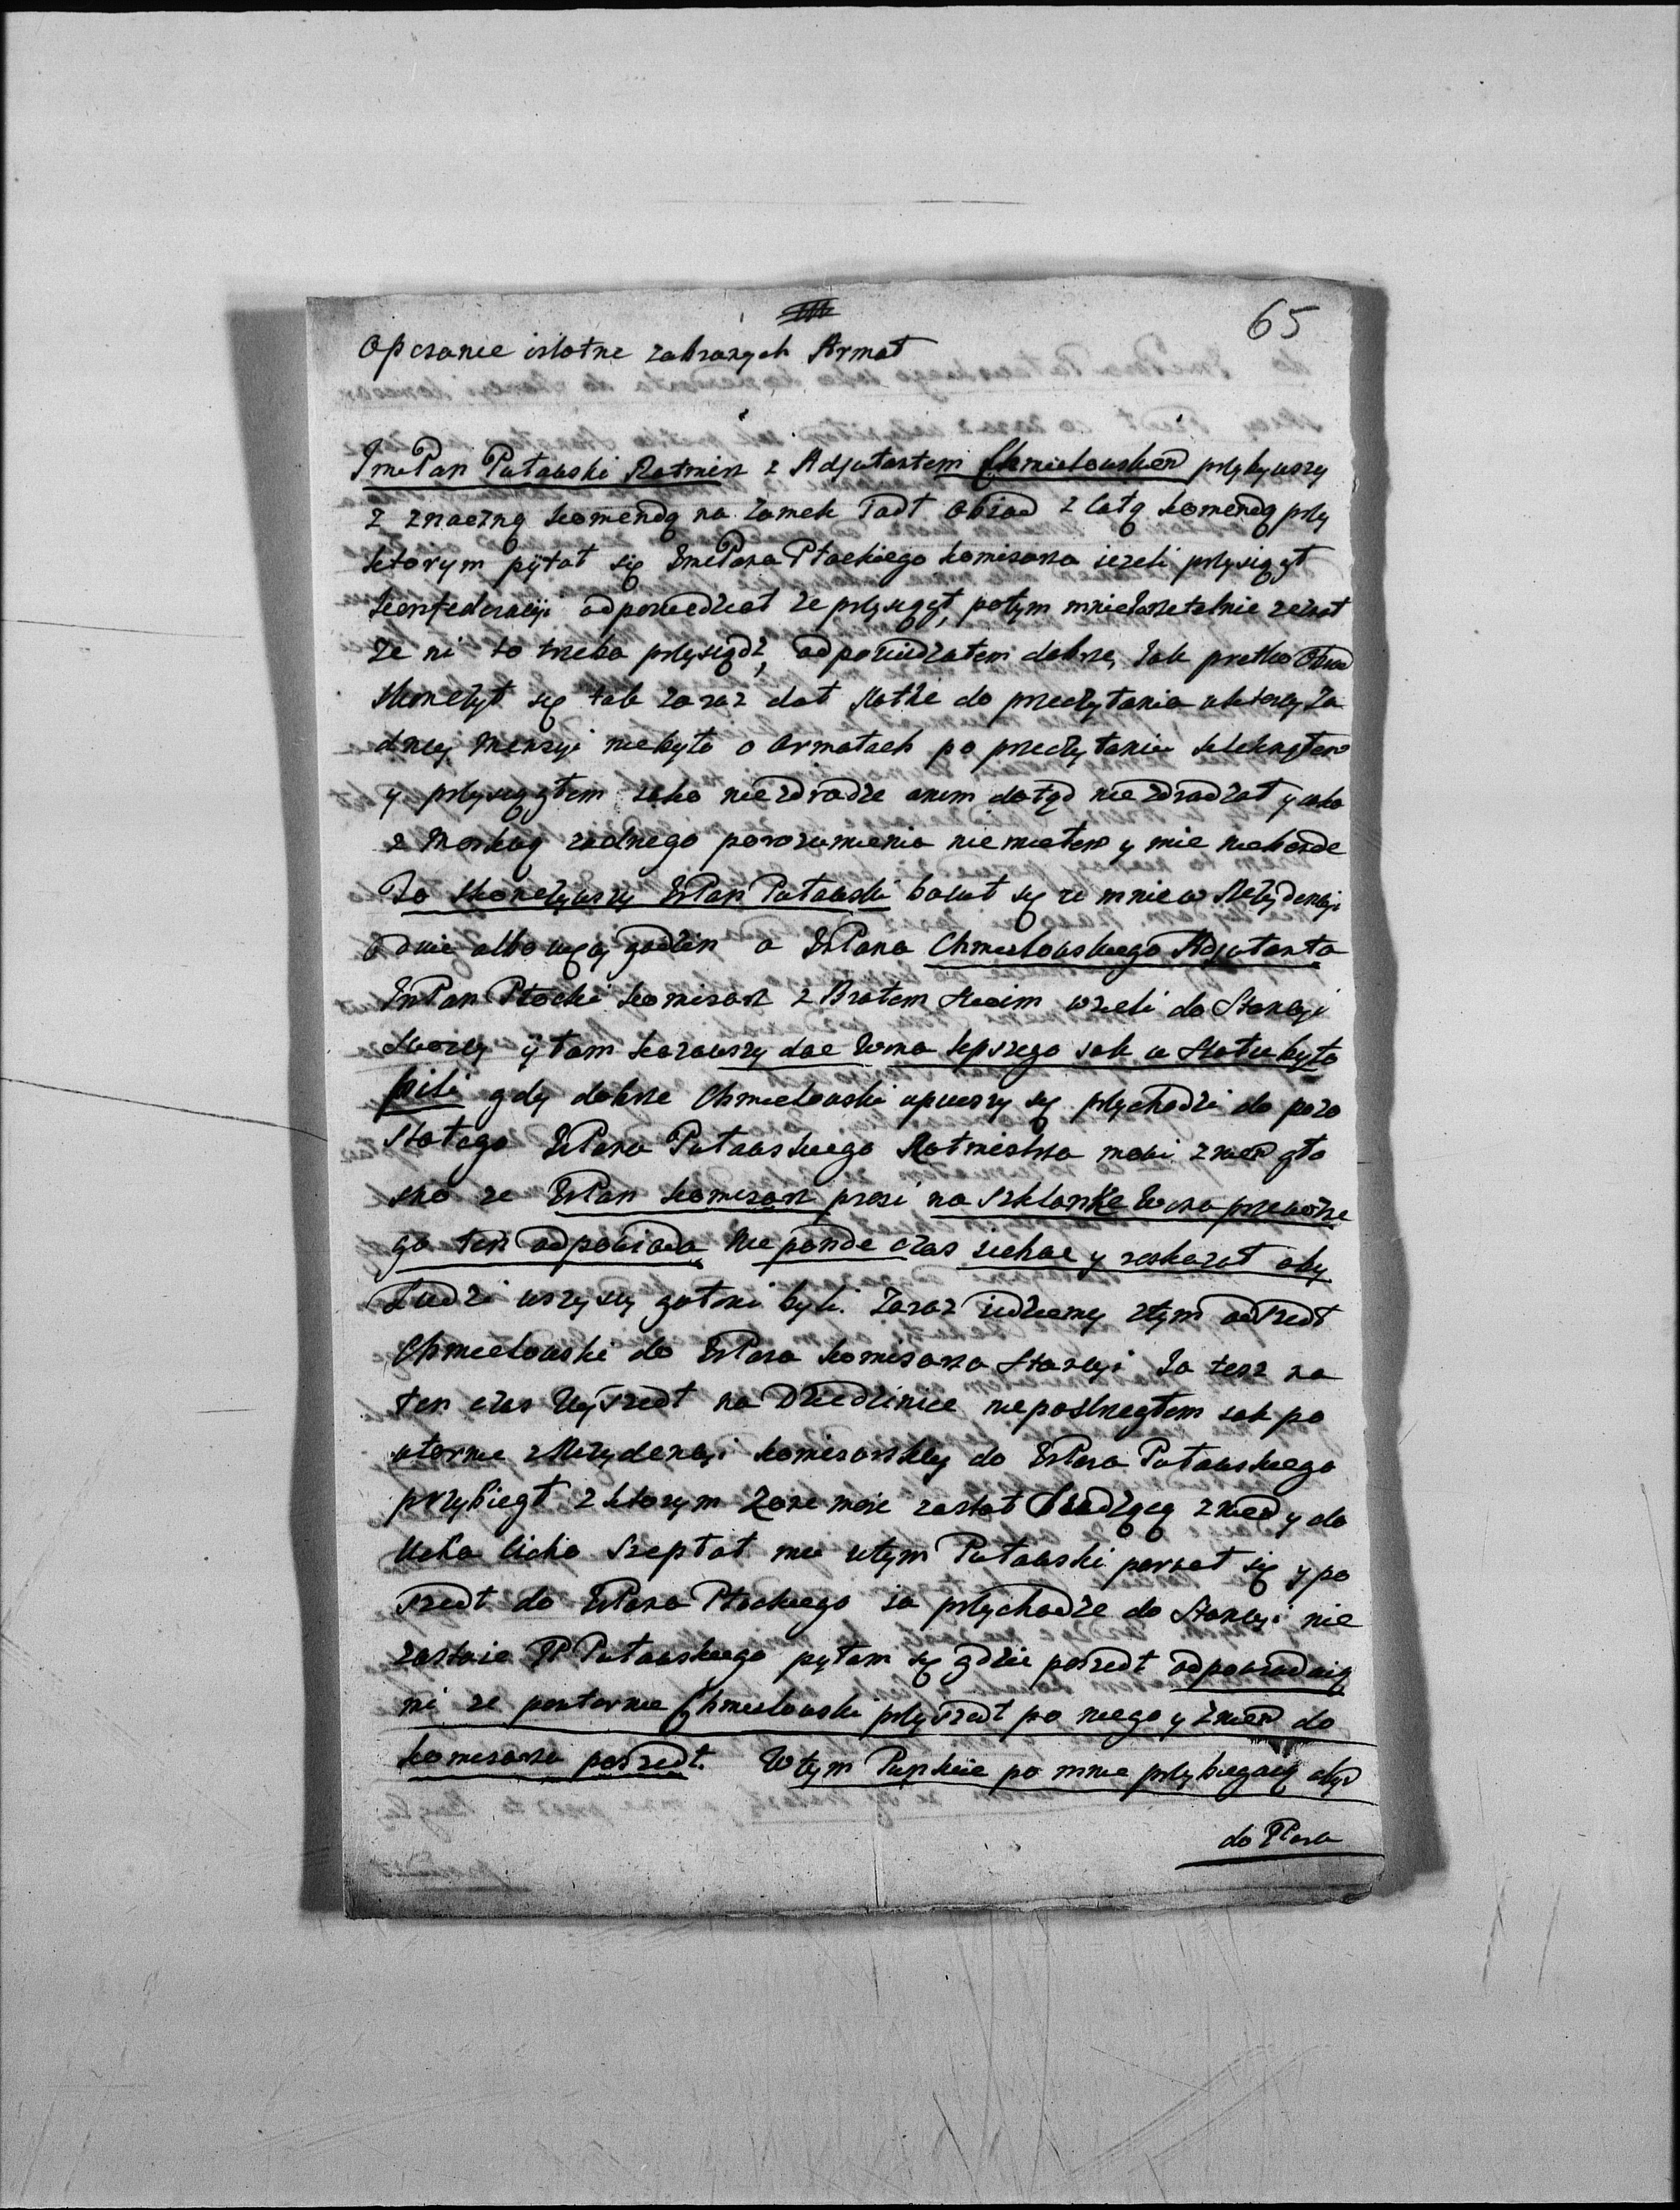 65
Opisanie istotne zabranych Armat
JmPan Puławski Rotmisz z Adjutantem Chmielowskiem przybywszy
z znaczną komendą na Zamek Jadł obiad z całą komendą przy
ktorym pytał się JmePana Płockiego komisarza iezeli przysiągł
konfederacyi odpowiedział ze przysiągł, potym mnie zapytał
ze mi to trzeba przysiądz, odpowiedziałem dobrze, Jak prętko Obiad
skonczył się tak zaraz dał Rothe do przeczytania w ktorey ża
dney Menzyi niebyło o Armatach po przeczytaniu klęknąłem
y przysiągłem iako niezdradze anim dotąd niezdradzał y iako
z Moskwą zadnego porozumienia niemiałem y mie niebende
To skonczywszy JmPan Puławski bawił się ze mnie w Rezydencyi
dwie albo więcy godzin a JmPana Chmielowskiego Adjutanta
JmPan Płocki komisarz z Bratem swoim wzieli do Stancyi
swoiey y tam kazawszy dac Wina lepszego jak u Stołu było
pili gdy dobrze Chmielowski upiwszy się przychodzi do pozo
stałego JmPana Puławskiego Rotmistrza mowi z niem gło
sno ze JmPan komisarz prosi na Szklankę Wina przednie
go ten odpowiada Nie pande czas iechac y roskazał aby
Ludzi wszyscy gotowi byli. Zaraz iedziemy ztym odszedł
Chmielowski do JmPana komisarza Stancyi Ja tesz na
ten czas Wyszedł na Dziedzinice niepostrzegłem jak po
wtornie z Rezydencyi komisarskiey do JmPana Puławskiego
przybiegł z ktorym Zone moie zastał Siedzącą z niem y do
Ucha cicho Szeptał mu wtym Puławski porwał się y po
szedł do JmPana Płockiego ia przychodze do Stancyi nie
zastaie JP Puławskiego pytam się gdzie poszedł odpowiadaią
mi ze powtornie Chmielowski przyszedł po niego y z niem do
komisarza poszedł. Wtym Pupkie po mnie przybiegaią abym
do JPana